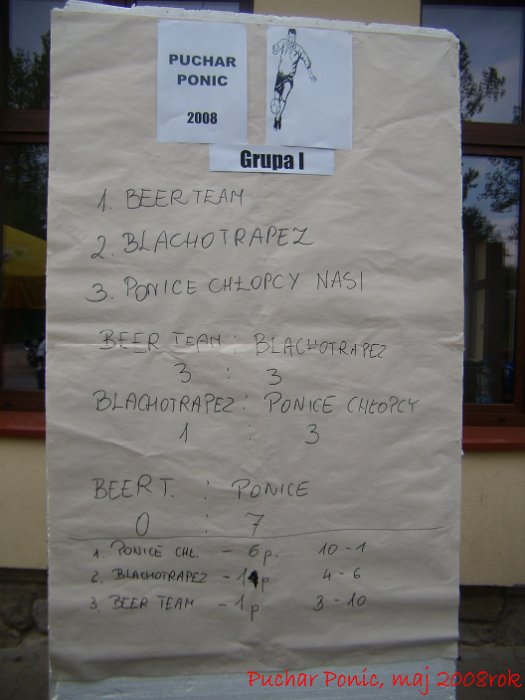 PUCHAR
PONIC
2008
Grupa I
1. BEER TEAM
2. BLACHOTRAPEZ
3. PONICE CHŁOPCY NASI
BEER TEAM : BLACHOTRAPEZ
3 : 3
BLACHOTRAPEZ : PONICE CHŁOPCY
1 : 3
BEER T. : PONICE
0 : 7
1. PONICE CHŁ. - 6 p. 10 - 1
2. BLACHOTRAPEZ - 1 p 4 - 6
3. BEER TEAM - 1 p 3 - 10
Puchar Ponic, maj 2008rok